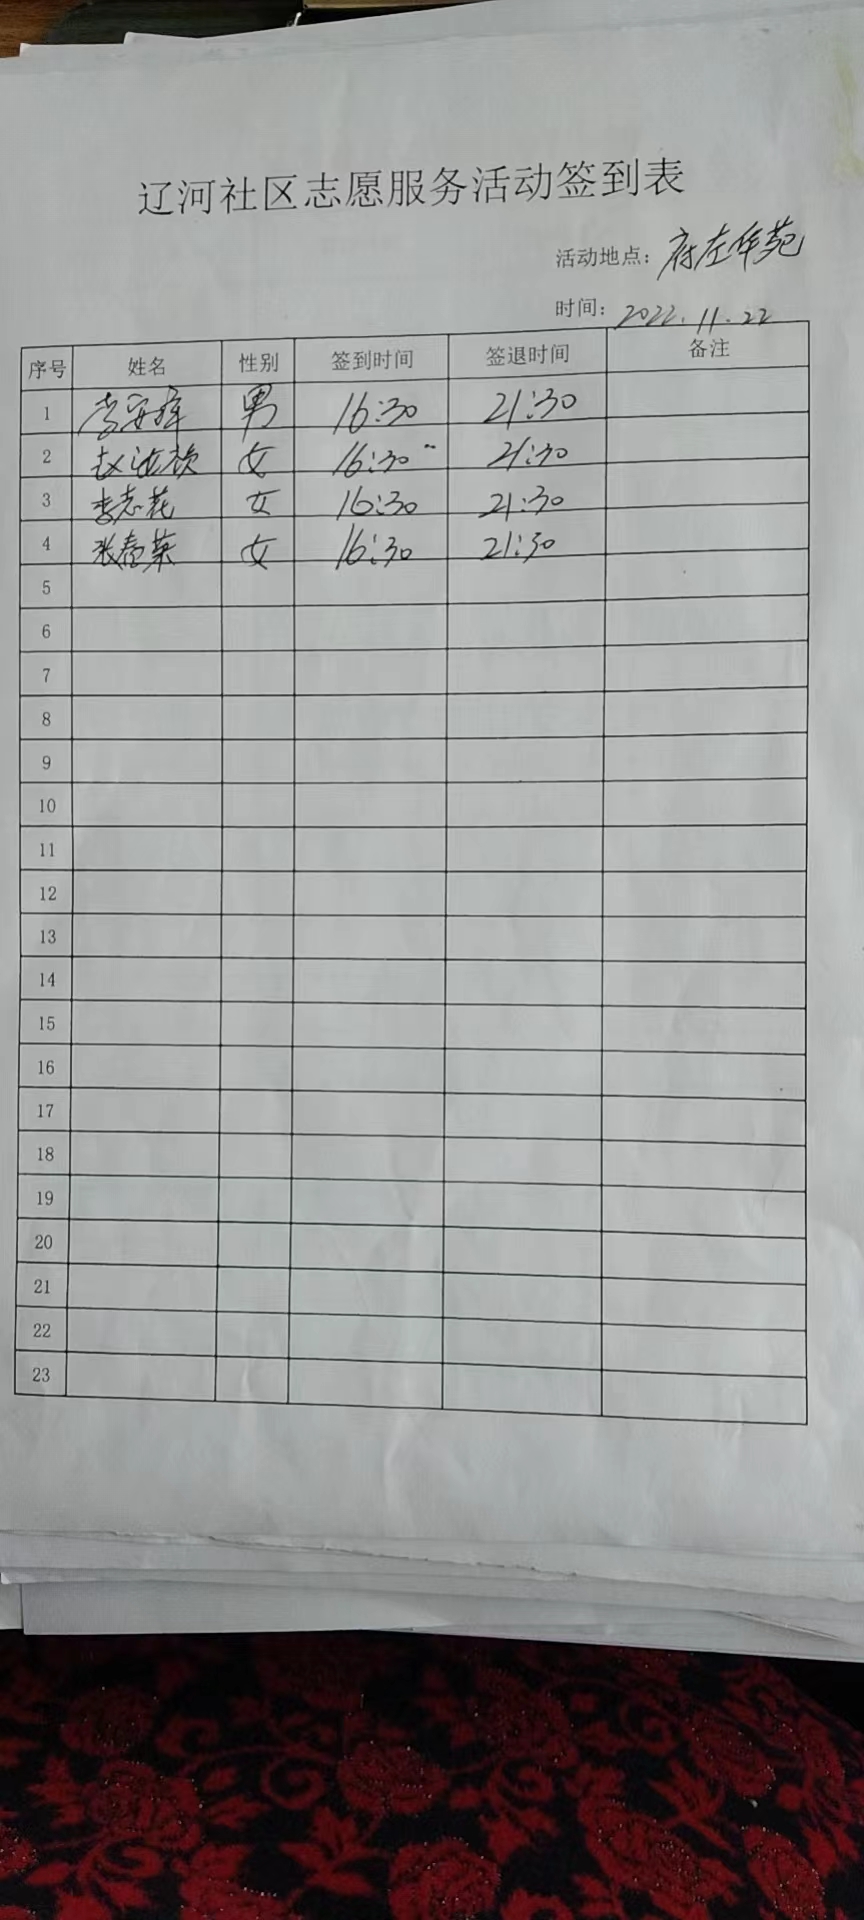 辽河社区志愿服务活动签到表
活动地点：府左华苑
时间：2022.11.22
序号 姓名 性别 签到时间 签退时间 备注
1 李安 男 16:30 21:30
2 赵 女 16:30 21:30
3 李志花 女 16:30 21:30
4 张春菊 女 16:30 21:30
5
6
7
8
9
10
11
12
13
14
15
16
17
18
19
20
21
22
23